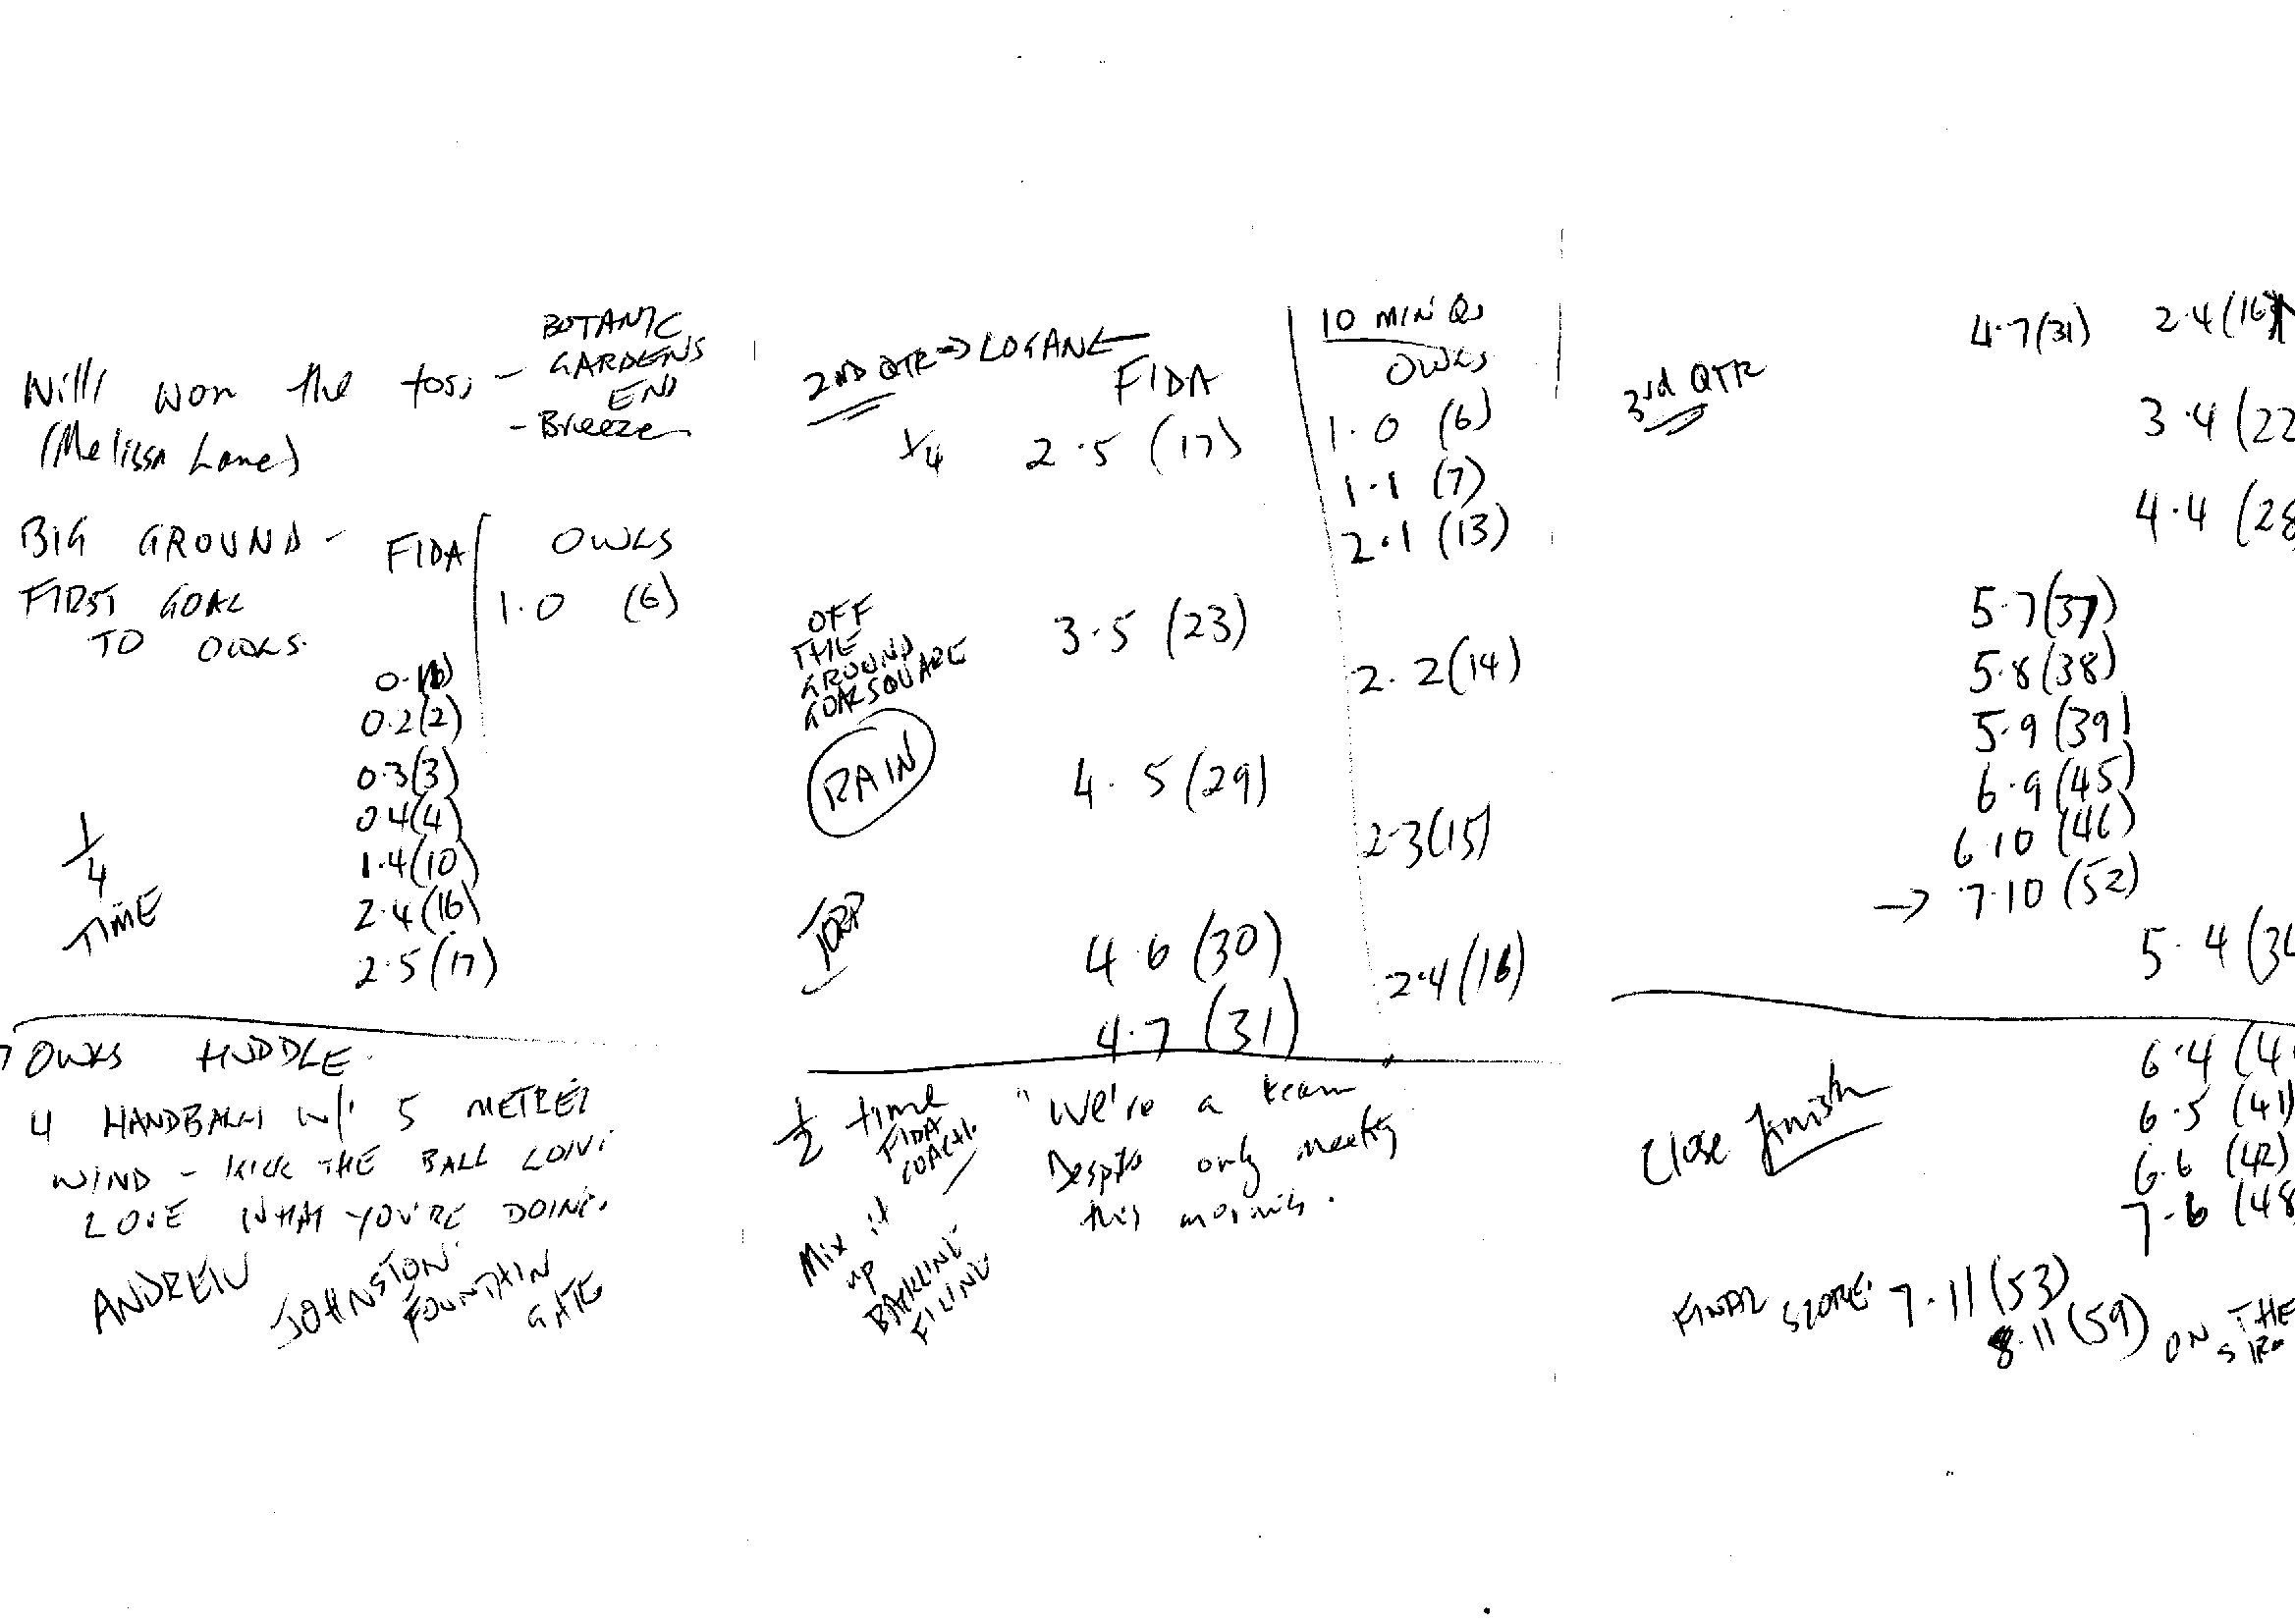 Wills won the toss - BOTANIC
GARDENS
END
- Breeze
(Melissa Lane)
BIG GROUND -
FIRST GOAL
TO OWLS.
FIDA OWLS
1.0 (6)
0.1(1)
0.2(2)
0.3(3)
0.4(4)
1.4(10)
2.4(16)
2.5(17)
1/4
TIME
OWLS HUDDLE.
4 HANDBALLS W/ 5 METRES
WIND - KICK THE BALL LONG
LOVE WHAT YOU'RE DOING.
ANDREW
JOHNSTON
FOUNTAIN
GATE
2ND QTR => LOGAN
10 MIN Qs
FIDA OWLS
1/4 2.5 (17) 1.0 (6)
1.1 (7)
2.1 (13)
OFF
THE
GROUND
GOALSQUARE
3.5 (23)
2.2 (14)
RAIN
4.5 (29)
2.3 (15)
4.6 (30)
2.4 (16)
4.7 (31)
1/2 time
FIDA
COACH.
"We're a team
Despite only meeting
this morning.
Mix it
up
BACKLINE
3rd QTR
4.7(31) 2.4(16)
3.4 (22
4.4 (28
5.7(37)
5.8(38)
5.9(39)
6.9(45)
6.10 (46)
-> 7.10 (52)
5.4 (34
6.4 (4
6.5 (41)
6.6 (42)
7.6 (48
Close finish
FINAL SCORE: 7.11 (53)
8.11 (59) ON THE